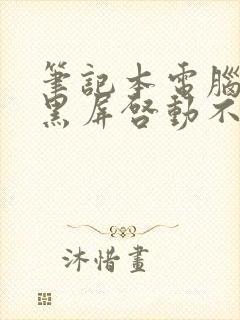 筆記本電腦
黑屏啓動不
沐惜畫